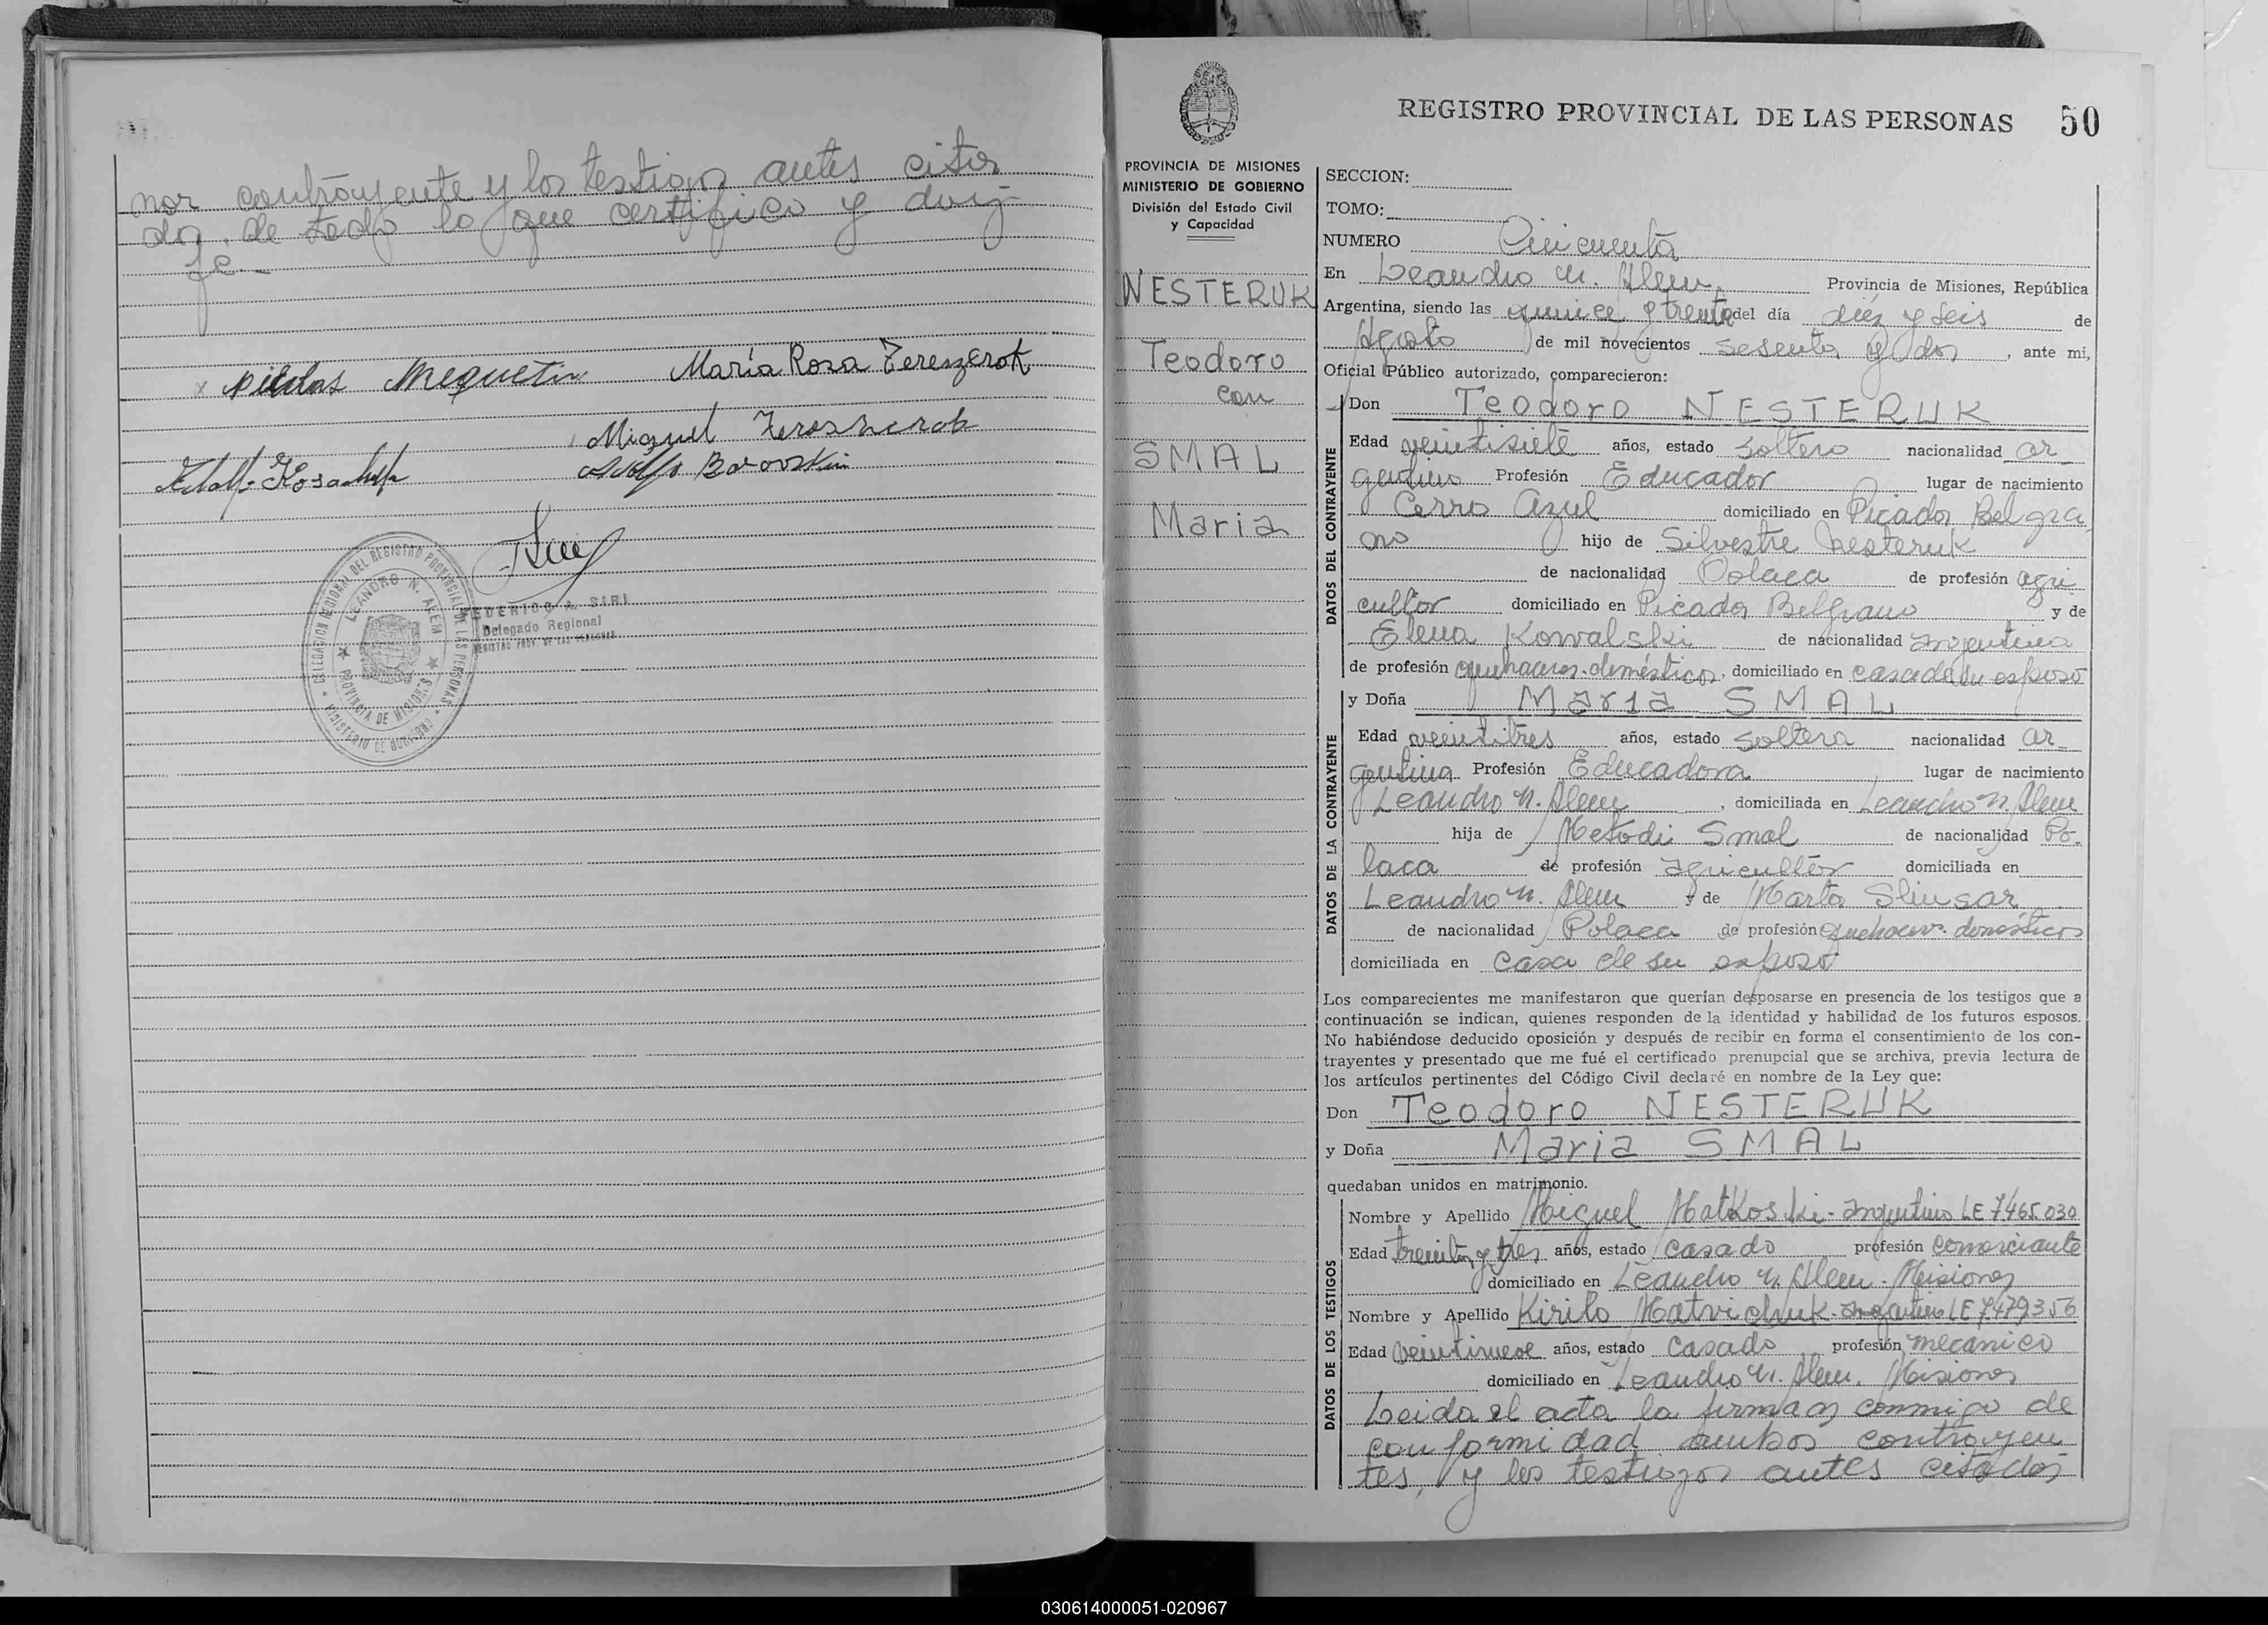 nor contrayente y los testigos antes cita
dos. de todo lo que certifico y doy
fe.-
María Rosa Tereszczok
Miguel
Adolfo
DELEGACION REGIONAL DEL REGISTRO PROVINCIAL DE LAS PERSONAS
LEANDRO N. ALEM
PROVINCIA DE MISIONES
MINISTERIO DE GOBIERNO
FEDERICO A. SIRI
Delegado Regional
REGISTRO PROV. DE LAS PERSONAS
REGISTRO PROVINCIAL DE LAS PERSONAS 50
PROVINCIA DE MISIONES
MINISTERIO DE GOBIERNO
División del Estado Civil
y Capacidad
NESTERUK
Teodoro
con
SMAL
Maria
SECCION:
TOMO:
NUMERO Cincuenta
En Leandro N. Alem, Provincia de Misiones, República
Argentina, siendo las quince y treinta del día diez y seis de
Agosto de mil novecientos sesenta y dos, ante mi,
Oficial Público autorizado, comparecieron:
DATOS DEL CONTRAYENTE
Don Teodoro NESTERUK
Edad veintisiete años, estado soltero nacionalidad ar-
gentino Profesión Educador lugar de nacimiento
Cerro Azul domiciliado en Picada Belgra
no hijo de Silvestre Nesteruk
de nacionalidad Polaca de profesión agri
cultor domiciliado en Picada Belgrano y de
Elena Kowalski de nacionalidad argentina
de profesión quehaceres domésticos, domiciliado en casa de su esposo
DATOS DE LA CONTRAYENTE
y Doña Maria SMAL
Edad veintitres años, estado soltera nacionalidad ar-
gentina Profesión Educadora lugar de nacimiento
Leandro N. Alem, domiciliada en Leandro N. Alem
hija de Metodi Smal de nacionalidad Po-
laca de profesión agricultor domiciliada en
Leandro N. Alem y de Marta Sliusar
de nacionalidad Polaca de profesión quehacer. domésticos
domiciliada en casa de su esposo
Los comparecientes me manifestaron que querían desposarse en presencia de los testigos que a
continuación se indican, quienes responden de la identidad y habilidad de los futuros esposos.
No habiéndose deducido oposición y después de recibir en forma el consentimiento de los con-
trayentes y presentado que me fué el certificado prenupcial que se archiva, previa lectura de
los artículos pertinentes del Código Civil declaré en nombre de la Ley que:
Don Teodoro NESTERUK
y Doña Maria SMAL
quedaban unidos en matrimonio.
DATOS DE LOS TESTIGOS
Nombre y Apellido Miguel Matkoski - argentino LE 7465.030
Edad treinta y tres años, estado casado profesión comerciante
domiciliado en Leandro N. Alem - Misiones
Nombre y Apellido Kirilo Matvichuk - argentino LE 7.479356
Edad veintinueve años, estado casado profesión mecanico
domiciliado en Leandro N. Alem. Misiones
Leida el acta la firman conmigo de
conformidad ambos contrayen
tes, y los testigos antes citados
030614000051-020967